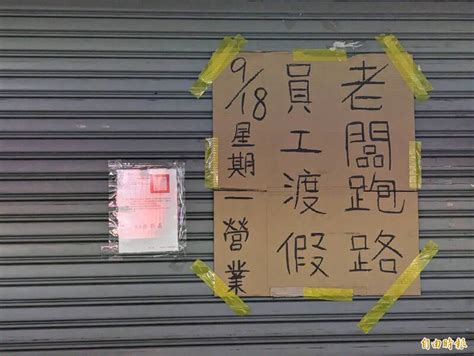 老闆跑路
員工渡假
9/18星期一營業
自由時報